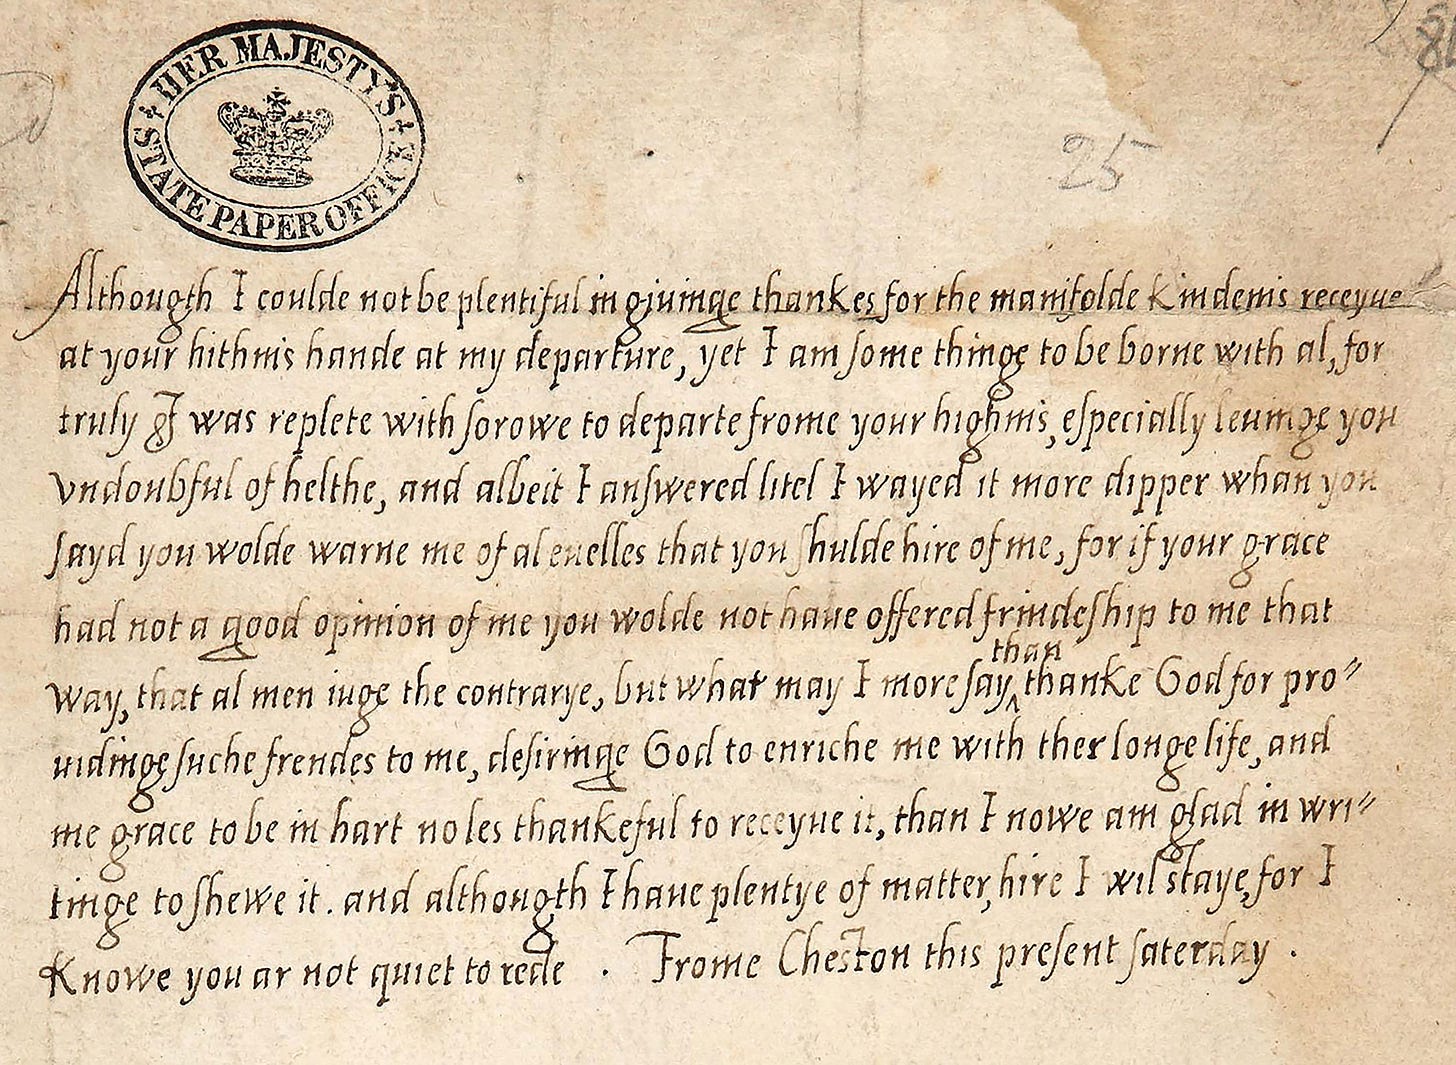 HER MAJESTY'S
STATE PAPER OFFICE
25
Althougth I coulde not be plentiful in giuinge thankes for the manifolde kindenis receyue
at your hithnis hande at my departure, yet I am some thinge to be borne with al, for
truly I was replete with sorowe to departe frome your highnis, especially leuinge you
vndoubful of helthe, and albeit I answered litel I wayed it more dipper whan you
sayd you wolde warne me of al euelles that you shulde hire of me, for if your grace
had not a good opinion of me you wolde not haue offered frindeship to me that
way, that al men iuge the contrarye, but what may I more say than thanke God for pro〃
uidinge suche frendes to me, desiringe God to enriche me with ther longe life, and
me grace to be in hart no les thankeful to receyue it, than I nowe am glad in wri〃
tinge to shewe it. and althougth I haue plentye of matter, hire I wil staye, for I
knowe you ar not quiet to rede . Frome Cheston this present saterday .